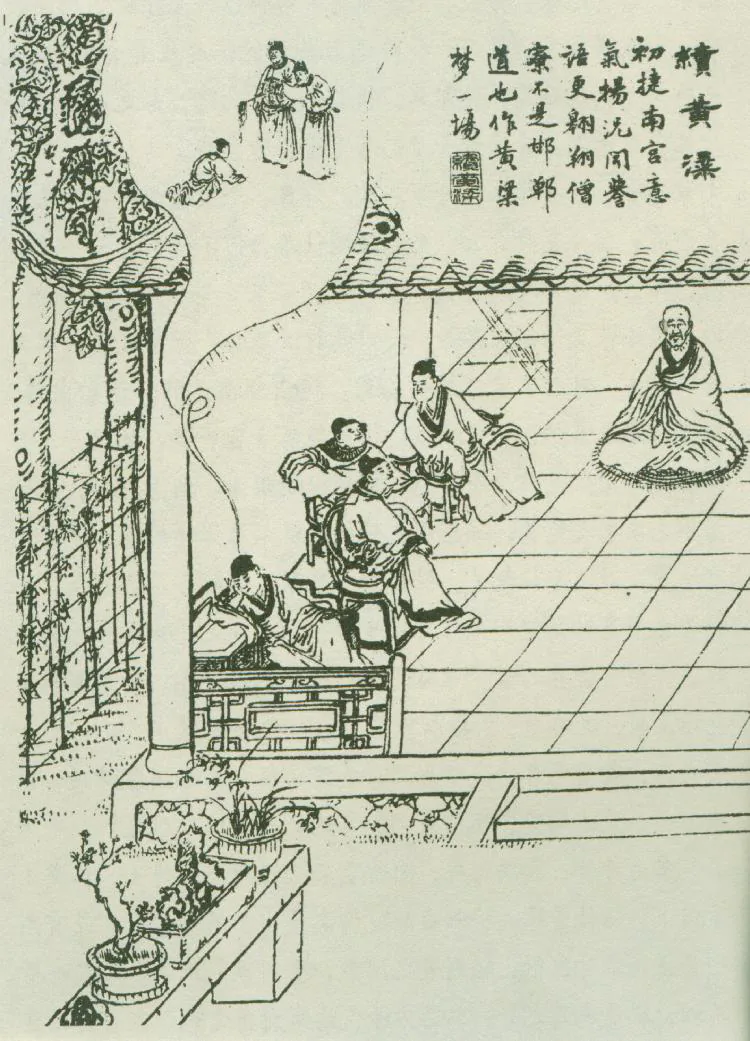 續黃粱
初捷南宮意
氣揚況聞譽
語更翱翔僧
寮不是邯鄲
道也作黃粱
夢一場
續黃粱